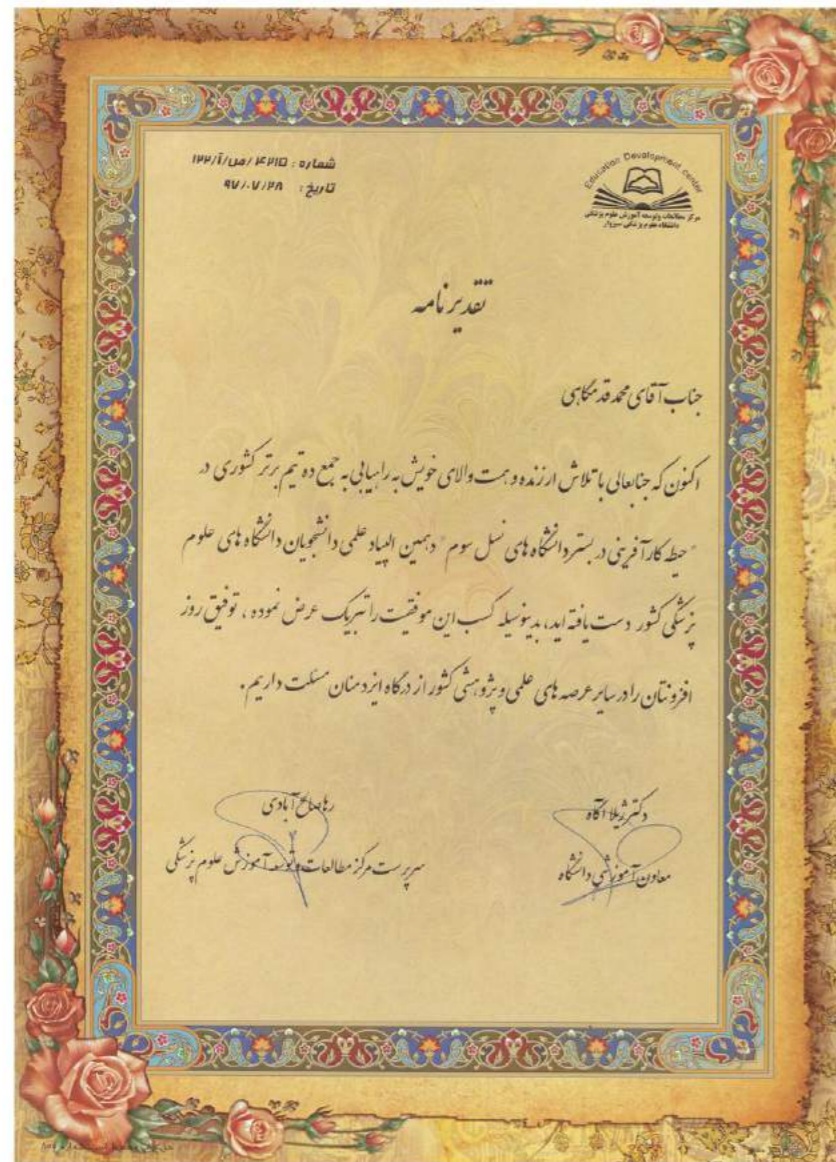 شماره : ۴۲۱۵ /ص/آ/۱۲۲
تاریخ : ۹۷/۰۷/۲۸
Education Development center
مرکز مطالعات وتوسعه آموزش علوم پزشکی
دانشگاه علوم پزشکی سبزوار
تقدیرنامه
جناب آقای محمد قدمگاهی
اکنون که جنابعالی با تلاش ارزنده و همت والای خویش به راهیابی به جمع ده تیم برتر کشوری در
"حیطه کارآفرینی در بستر دانشگاه های نسل سوم" دهمین المپیاد علمی دانشجویان دانشگاه های علوم
پزشکی کشور دست یافته اید، بدینوسیله کسب این موفقیت را تبریک عرض نموده ، توفیق روز
افزونتان را در سایر عرصه های علمی و پژوهشی کشور از درگاه ایزد منان مسئلت داریم.
دکتر ژیلا آگاه
معاون آموزشی دانشگاه
رها صالح آبادی
سرپرست مرکز مطالعات و توسعه آموزش علوم پزشکی